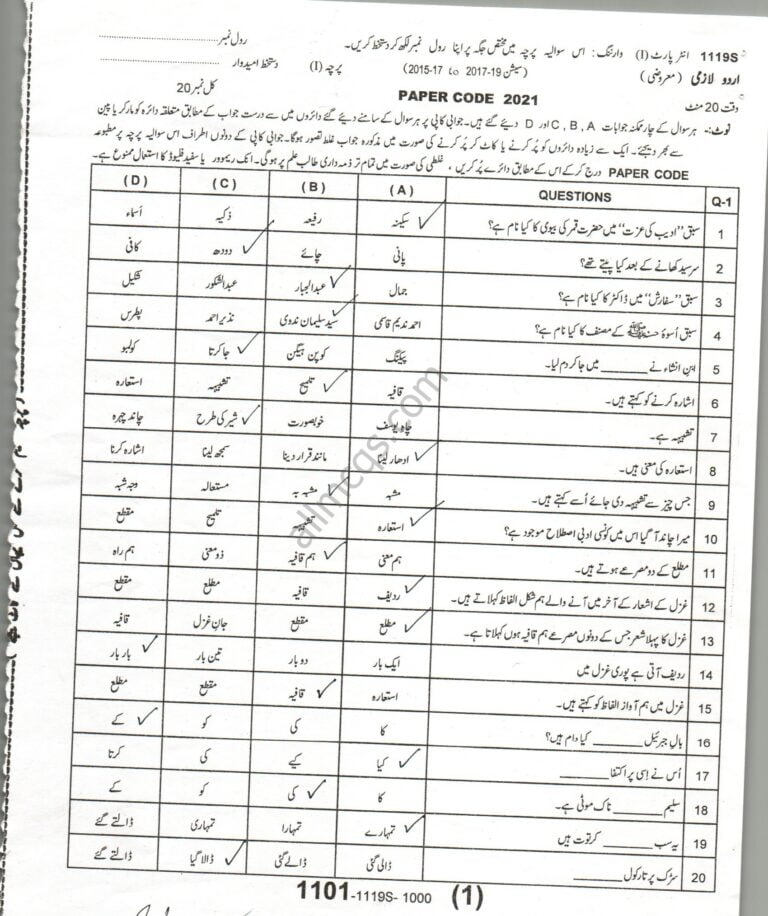 1119S انٹر پارٹ (I) وارننگ: اس سوالیہ پرچہ میں مختص جگہ پر اپنا رول نمبر لکھ کر دستخط کریں۔ رول نمبر
اردو لازمی (معروضی) (سیشن 2015-17 to 2017-19) پرچہ (I) دستخط امیدوار
وقت 20 منٹ PAPER CODE 2021 کل نمبر 20
نوٹ:- ہر سوال کے چار ممکنہ جوابات A ,B ,C اور D دیئے گئے ہیں۔ جوابی کاپی پر ہر سوال کے سامنے دیئے گئے دائروں میں سے درست جواب کے مطابق متعلقہ دائرہ کو مارکر یا پین
سے بھر دیجئے۔ ایک سے زیادہ دائروں کو پُر کرنے یا کاٹ کر پُر کرنے کی صورت میں مذکورہ جواب غلط تصور ہوگا۔ جوابی کاپی کے دونوں اطراف اس سوالیہ پرچہ پر مطبوعہ
PAPER CODE درج کر کے اس کے مطابق دائرے پُر کریں، غلطی کی صورت میں تمام تر ذمہ داری طالب علم پر ہوگی۔ انک ریموور یا سفید فلیوڈ کا استعمال ممنوع ہے۔
Q-1 QUESTIONS (A) (B) (C) (D)
1 سبق "ادیب کی عزت" میں حضرت قمر کی بیوی کا کیا نام ہے؟ سکینہ رفیعہ ذکیہ اسماء
2 سرسید کھانے کے بعد کیا پیتے تھے؟ پانی چائے دودھ کافی
3 سبق "سفارش" میں ڈاکٹر کا کیا نام ہے؟ جمال عبدالجبار عبدالشکور شکیل
4 سبق اُسوۂ حسنہ ﷺ کے مصنف کا کیا نام ہے؟ احمد ندیم قاسمی سید سلیمان ندوی نذیر احمد پطرس
5 ابنِ انشاء نے ______ میں جا کر دم لیا۔ پیکنگ کوپن ہیگن جاکرتا کولمبو
6 اشارہ کرنے کو کہتے ہیں۔ قافیہ تلمیح تشبیہہ استعارہ
7 تشبیہہ ہے۔ چاہِ یوسف خوبصورت شیر کی طرح چاند چہرہ
8 استعارہ کی معنی ہیں۔ ادھار لینا مانند قرار دینا سمجھ لینا اشارہ کرنا
9 جس چیز سے تشبیہہ دی جائے اُسے کہتے ہیں۔ مشبہ مشبہ بہ مستعارلہ وجہ شبہ
10 میرا چاند آ گیا اس میں کونسی ادبی اصطلاح موجود ہے؟ استعارہ تشبیہہ تلمیح مقطع
11 مطلع کے دو مصرعے ہوتے ہیں۔ ہم معنی ہم قافیہ ذومعنی ہم راہ
12 غزل کے اشعار کے آخر میں آنے والے ہم شکل الفاظ کہلاتے ہیں۔ ردیف قافیہ مطلع مقطع
13 غزل کا پہلا شعر جس کے دونوں مصرعے ہم قافیہ ہوں کہلاتا ہے۔ مطلع مقطع جانِ غزل قافیہ
14 ردیف آتی ہے پوری غزل میں ایک بار دو بار تین بار بار بار
15 غزل میں ہم آواز الفاظ کو کہتے ہیں۔ استعارہ قافیہ مقطع مطلع
16 بالِ جبرئیل ______ کیا دام ہیں؟ کا کی کو کے
17 اُس نے اِسی پر اکتفا ______ کیا کیے کی کرتا
18 سلیم ______ ناک موٹی ہے۔ کا کی کو کے
19 یہ سب ______ کرتوت ہیں تمہارے تمہارا تمہاری ڈالتے گئے
20 سڑک پر تارکول ______ ڈالی گئی ڈالے گئی ڈالا گیا ڈالتے گئے
1101-1119S- 1000 (1)
allmcqs.com